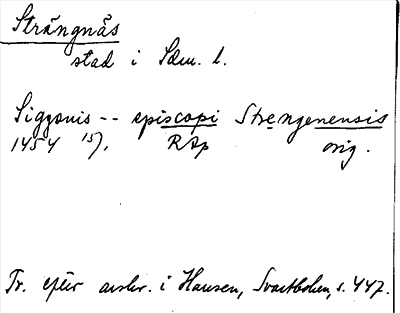 Strängnäs
stad i Sdm. l.
Siggonis -- episcopi Strengenensis
1454 15/1. RAp orig.
Tr. efter avskr. i Hausen, Svartboken, s. 447.